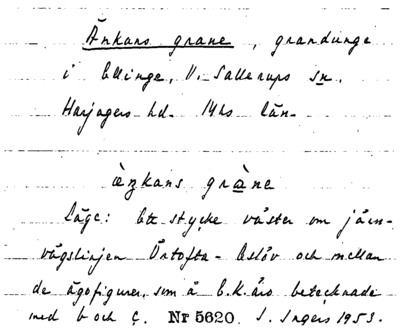 Änkans grane, grandunge
i Ellinge, V. Sallerups sn.
Harjagers hd. Mhs län.
æŋkans gràne
Läge: Ett stycke väster om järn-
vägslinjen Örtofta - Eslöv och mellan
de ägofigurer, som å E.K. äro betecknade
med b och c. Nr 5620. I. Ingers 1953.